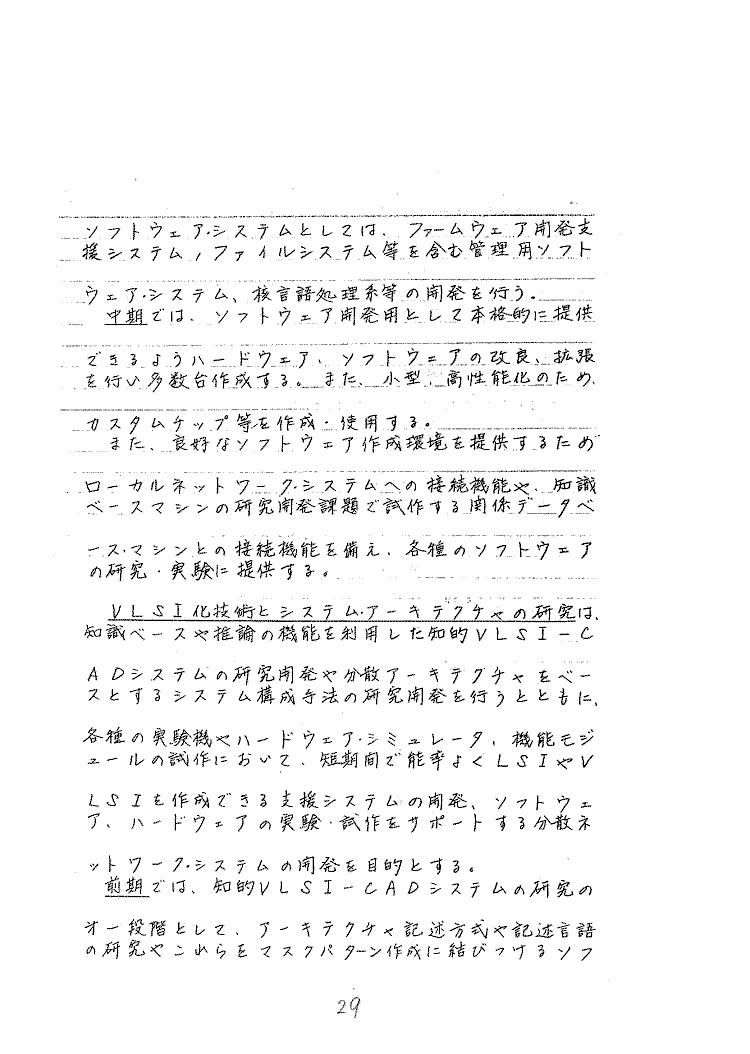 ソフトウェア・システムとしては、ファームウェア開発支
援システム，ファイルシステム等を含む管理用ソフト
ウェア・システム、核言語処理系等の開発を行う。
中期では、ソフトウェア開発用として本格的に提供
できるようハードウェア、ソフトウェアの改良、拡張
を行い多数台作成する。また、小型，高性能化のため、
カスタムチップ等を作成・使用する。
また、良好なソフトウェア作成環境を提供するため
ローカルネットワーク・システムへの接続機能や、知識
ベースマシンの研究開発課題で試作する関係データベ
ース・マシンとの接続機能を備え、各種のソフトウェア
の研究・実験に提供する。
VLSI化技術とシステム・アーキテクチャの研究は、
知識ベースや推論の機能を利用した知的VLSI-C
ADシステムの研究開発や分散アーキテクチャをベー
スとするシステム構成手法の研究開発を行うとともに、
各種の実験機やハードウェア・シミュレータ，機能モジ
ュールの試作において、短期間で能率よくLSIやV
LSIを作成できる支援システムの開発、ソフトウェ
ア、ハードウェアの実験・試作をサポートする分散ネ
ットワーク・システムの開発を目的とする。
前期では、知的VLSI-CADシステムの研究の
オ一段階として、アーキテクチャ記述方式や記述言語
の研究やこれらをマスクパターン作成に結びつけるソフ
29